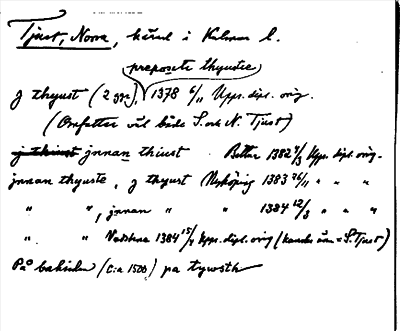 Tjust, Norra, härad i Kalmar l.
preposite thyustie
j thyust (2 ggr), 1378 6/11 Upps. dipl. orig.
(Omfattar väl både S. och N. Tjust)
j thiust jnnan thiust Bettna 1382 4/3 Upps. dipl. orig.
jnnan thyuste, j thyust Nyköping 1383 26/11 " " "
" " , jnnan " " 1384 12/3 " " "
" " Vadstena 1384 15/4 Upps. dipl. orig (kanske även = S. Tjust)
På baksidan (c:a 1500) pa tywsth